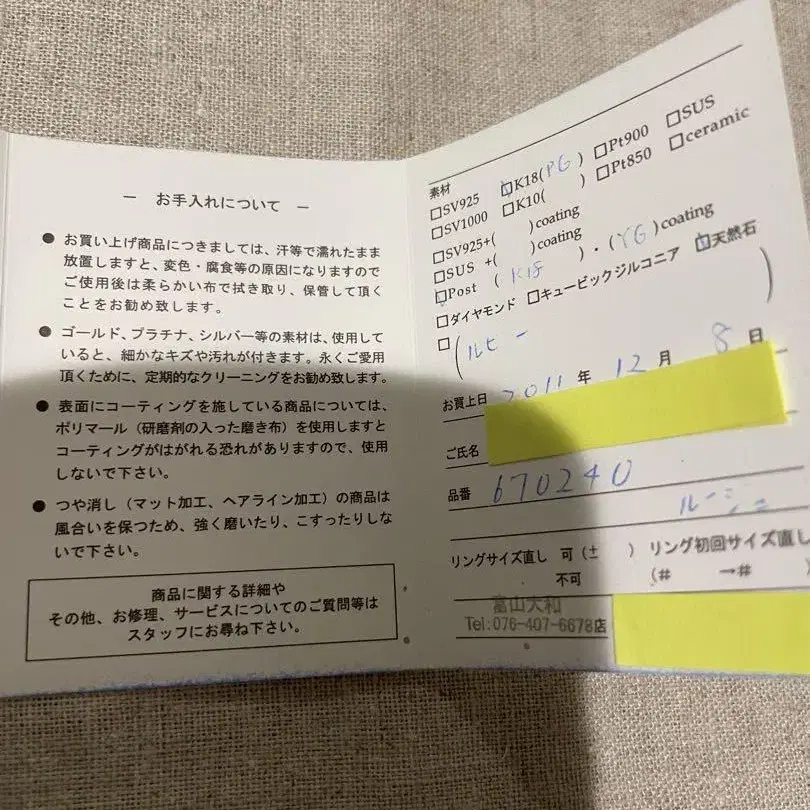 ― お手入れについて ―
● お買い上げ商品につきましては、汗等で濡れたまま
放置しますと、変色・腐食等の原因になりますので
ご使用後は柔らかい布で拭き取り、保管して頂く
ことをお勧め致します。
● ゴールド、プラチナ、シルバー等の素材は、使用して
いると、細かなキズや汚れが付きます。永くご愛用
頂くために、定期的なクリーニングをお勧め致します。
● 表面にコーティングを施している商品については、
ポリマール（研磨剤の入った磨き布）を使用しますと
コーティングがはがれる恐れがありますので、使用
しないで下さい。
● つや消し（マット加工、ヘアライン加工）の商品は
風合いを保つため、強く磨いたり、こすったりしな
いで下さい。
商品に関する詳細や
その他、お修理、サービスについてのご質問等は
スタッフにお尋ね下さい。
素材
□SV925 ☑K18(PG) □Pt900 □SUS
□SV1000 □K10( ) □Pt850 □ceramic
□SV925+( )coating
□SUS +( )coating
☑Post (K18 )・(YG)coating
□ダイヤモンド □キュービックジルコニア ☑天然石
□(ルビー )
お買上日 2011年 12月 8日
ご氏名
品番 670240
ルージュ
リングサイズ直し 可(± ) リング初回サイズ直し
不可 (# →# )
富山大和
Tel:076-407-6678店